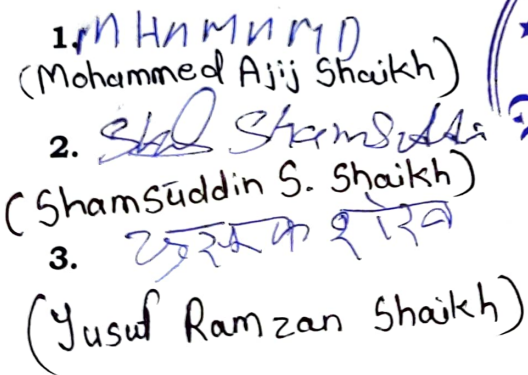 1. MHNMNMD
(Mohammed Ajij Shaikh)
2. Shamsuddin
(Shamsuddin S. Shaikh)
3. शेख
(Yusuf Ramzan Shaikh)